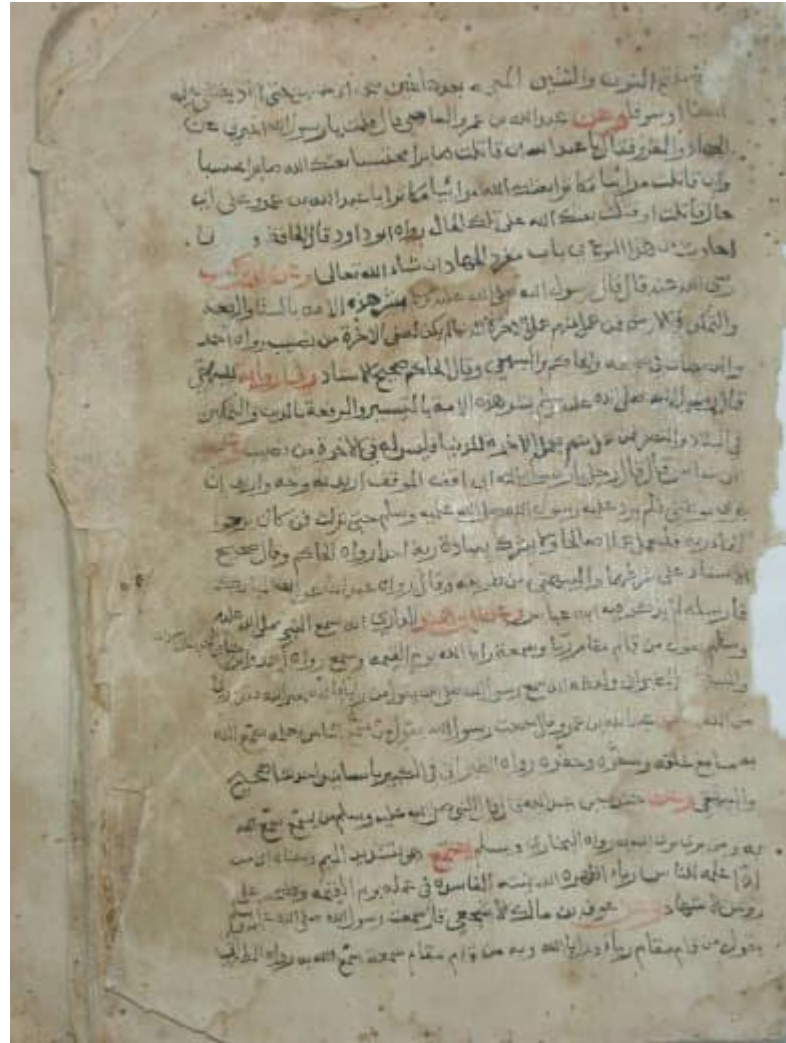 النون والشين المعجمة بعدها غين
او سوقا وعن عبد الله بن عمرو بن العاصي قال قلت يا رسول الله اخبرني عن
الجهاد والغزو فقال يا عبد الله ان قاتلت صابرا محتسبا بعثك الله صابرا محتسبا
وان قاتلت مرائيا مكاثرا بعثك الله مرائيا مكاثرا يا عبد الله بن عمرو على اي
حال قاتلت او قتلت بعثك الله على تلك الحال رواه ابو داود قال الحافظ و
احاديث من هذا النوع في باب مفرد للجهاد ان شاء الله تعالى وعن ابي بن كعب
رضي الله عنه قال قال رسول الله صلى الله عليه وسلم بشر هذه الامة بالسنا والرفعة
والتمكن في الارض فمن عمل منهم عمل الاخرة للدنيا لم يكن له في الاخرة من نصيب رواه احمد
وابن حبان في صحيحه والحاكم والبيهقي وقال الحاكم صحيح الاسناد وفي رواية للبيهقي
قال رسول الله صلى الله عليه وسلم بشر هذه الامة بالتيسير والرفعة بالدين والتمكين
في البلاد والنصر فمن عمل منهم بعمل الاخرة للدنيا فليس له في الاخرة من نصيب وعن
ابن عباس قال قال رجل يا رسول الله اني اقف الموقف اريد به وجه واريد ان
يرى موطني فلم يرد عليه رسول الله صلى الله عليه وسلم حتى نزلت فمن كان يرجوا
لقاء ربه فليعمل عملا صالحا ولا يشرك بعبادة ربه احدا رواه الحاكم وقال صحيح
الاسناد على شرطهما والبيهقي من طريقه وقال رواه عبدان عن ابن المبارك
فارسله لم يذكر فيه ابن عباس وعن ابي هند الداري انه سمع النبي صلى الله عليه
وسلم يقول من قام مقام رياء وسمعة رايا الله به يوم القيمة وسمع رواه احمد
والبيهقي والطبراني ولفظه انه سمع رسول الله صلى الله عليه وسلم يقول من رايا بالله لغير الله فقد برئ
من الله وعن عبد الله بن عمرو قال سمعت رسول الله يقول من سمع الناس بعمله سمع الله
به سامع خلقه وصغره وحقره رواه الطبراني في الكبير باسانيد احدها صحيح
والبيهقي وعن جندب بن عبد الله قال قال النبي صلى الله عليه وسلم من يسمع سمع الله
به ومن يرائي يرائي الله به رواه البخاري ومسلم يسمع هو بتشديد الميم ومعناه ان من
عمله للناس رياء اظهر الله نيته الفاسدة في عمله يوم القيمة وفضحه على
رؤس الاشهاد وعن عوف بن مالك الاشجعي قال سمعت رسول الله صلى الله عليه وسلم
يقول من قام مقام رياء رايا الله به ومن قام مقام سمعة سمع الله به رواه الطبراني